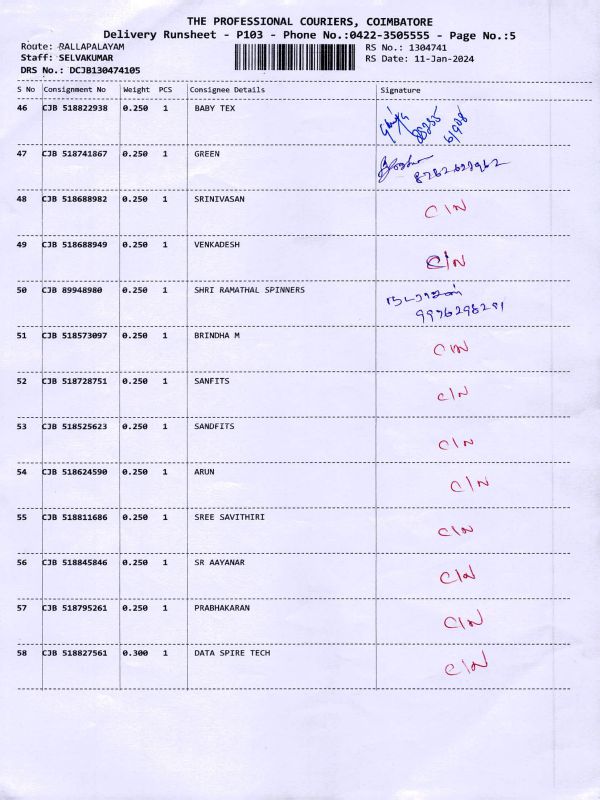 THE PROFESSIONAL COURIERS, COIMBATORE
Delivery Runsheet - P103 - Phone No.:0422-3505555 - Page No.:5
Route: PALLAPALAYAM RS No.: 1304741
Staff: SELVAKUMAR RS Date: 11-Jan-2024
DRS No.: DCJB130474105
S No Consignment No Weight PCS Consignee Details Signature
46 CJB 518822938 0.250 1 BABY TEX
88255
61908
47 CJB 518741867 0.250 1 GREEN
48 CJB 518688982 0.250 1 SRINIVASAN C/N
49 CJB 518688949 0.250 1 VENKADESH C/N
50 CJB 89948980 0.250 1 SHRI RAMATHAL SPINNERS
51 CJB 518573097 0.250 1 BRINDHA M C/N
52 CJB 518728751 0.250 1 SANFITS C/N
53 CJB 518525623 0.250 1 SANDFITS C/N
54 CJB 518624590 0.250 1 ARUN C/N
55 CJB 518811686 0.250 1 SREE SAVITHIRI C/N
56 CJB 518845846 0.250 1 SR AAYANAR C/N
57 CJB 518795261 0.250 1 PRABHAKARAN C/N
58 CJB 518827561 0.300 1 DATA SPIRE TECH C/N